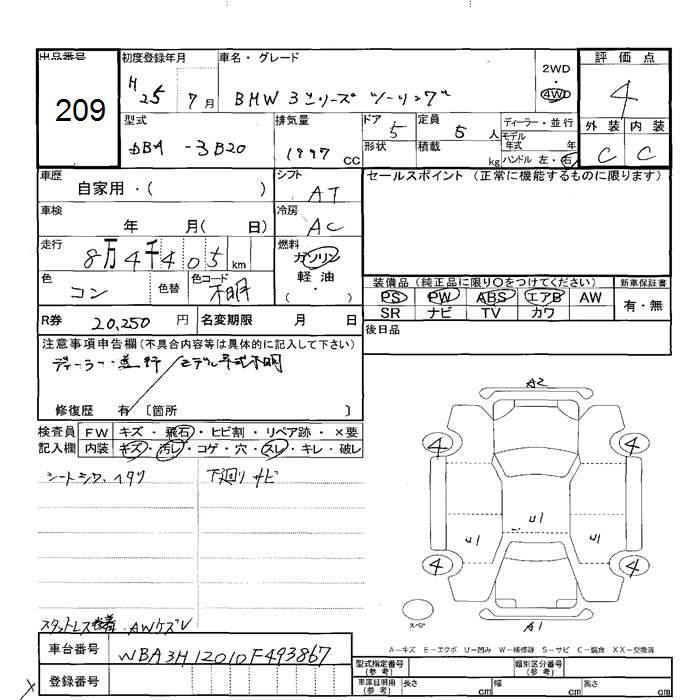 出品番号 初度登録年月 車名・グレード 評価点
209 H 25 7月 BMW 3シリーズ ツーリング 2WD 4WD 4
型式 排気量 ドア 定員 ディーラー・並行 外装 内装
DBA-3B20 1997 CC 5 5 人 モデル年式 年 C C
形状 積載 kg ハンドル 左・右
車歴 シフト セールスポイント (正常に機能するものに限ります)
自家用・( ) AT
車検 冷房
年 月( 日) AC
走行 燃料
8万4千405km ガソリン
軽油
・( )
色 コン 色替 色コード 不明
装備品 (純正品に限り○をつけてください) 新車保証書
PS PW ABS エアB AW 有・無
SR ナビ TV カワ
R券 20,250 円 名変期限 月 日
後日品
注意事項申告欄 (不具合内容等は具体的に記入して下さい)
ディーラー・並行/モデル年式不明
修復歴 有 〔箇所 〕
検査員 FW キズ・飛石・ヒビ割・リペア跡・×要
記入欄 内装 キズ・汚レ・コゲ・穴・スレ・キレ・破レ
シートシワ、ヘタリ 下廻りサビ
A2
4 4
U1
U1 U1
4 4
スペア A1
スタットレス装着 AWケズレ
A−キズ E−エクボ U−凹み W−補修跡 S−サビ C−腐食 XX−交換済
車台番号 WBA3H12010F493867
登録番号
型式指定番号 (参考) 類別区分番号 (参考)
車庫証明用 (参考) 長さ cm 幅 cm 高さ cm